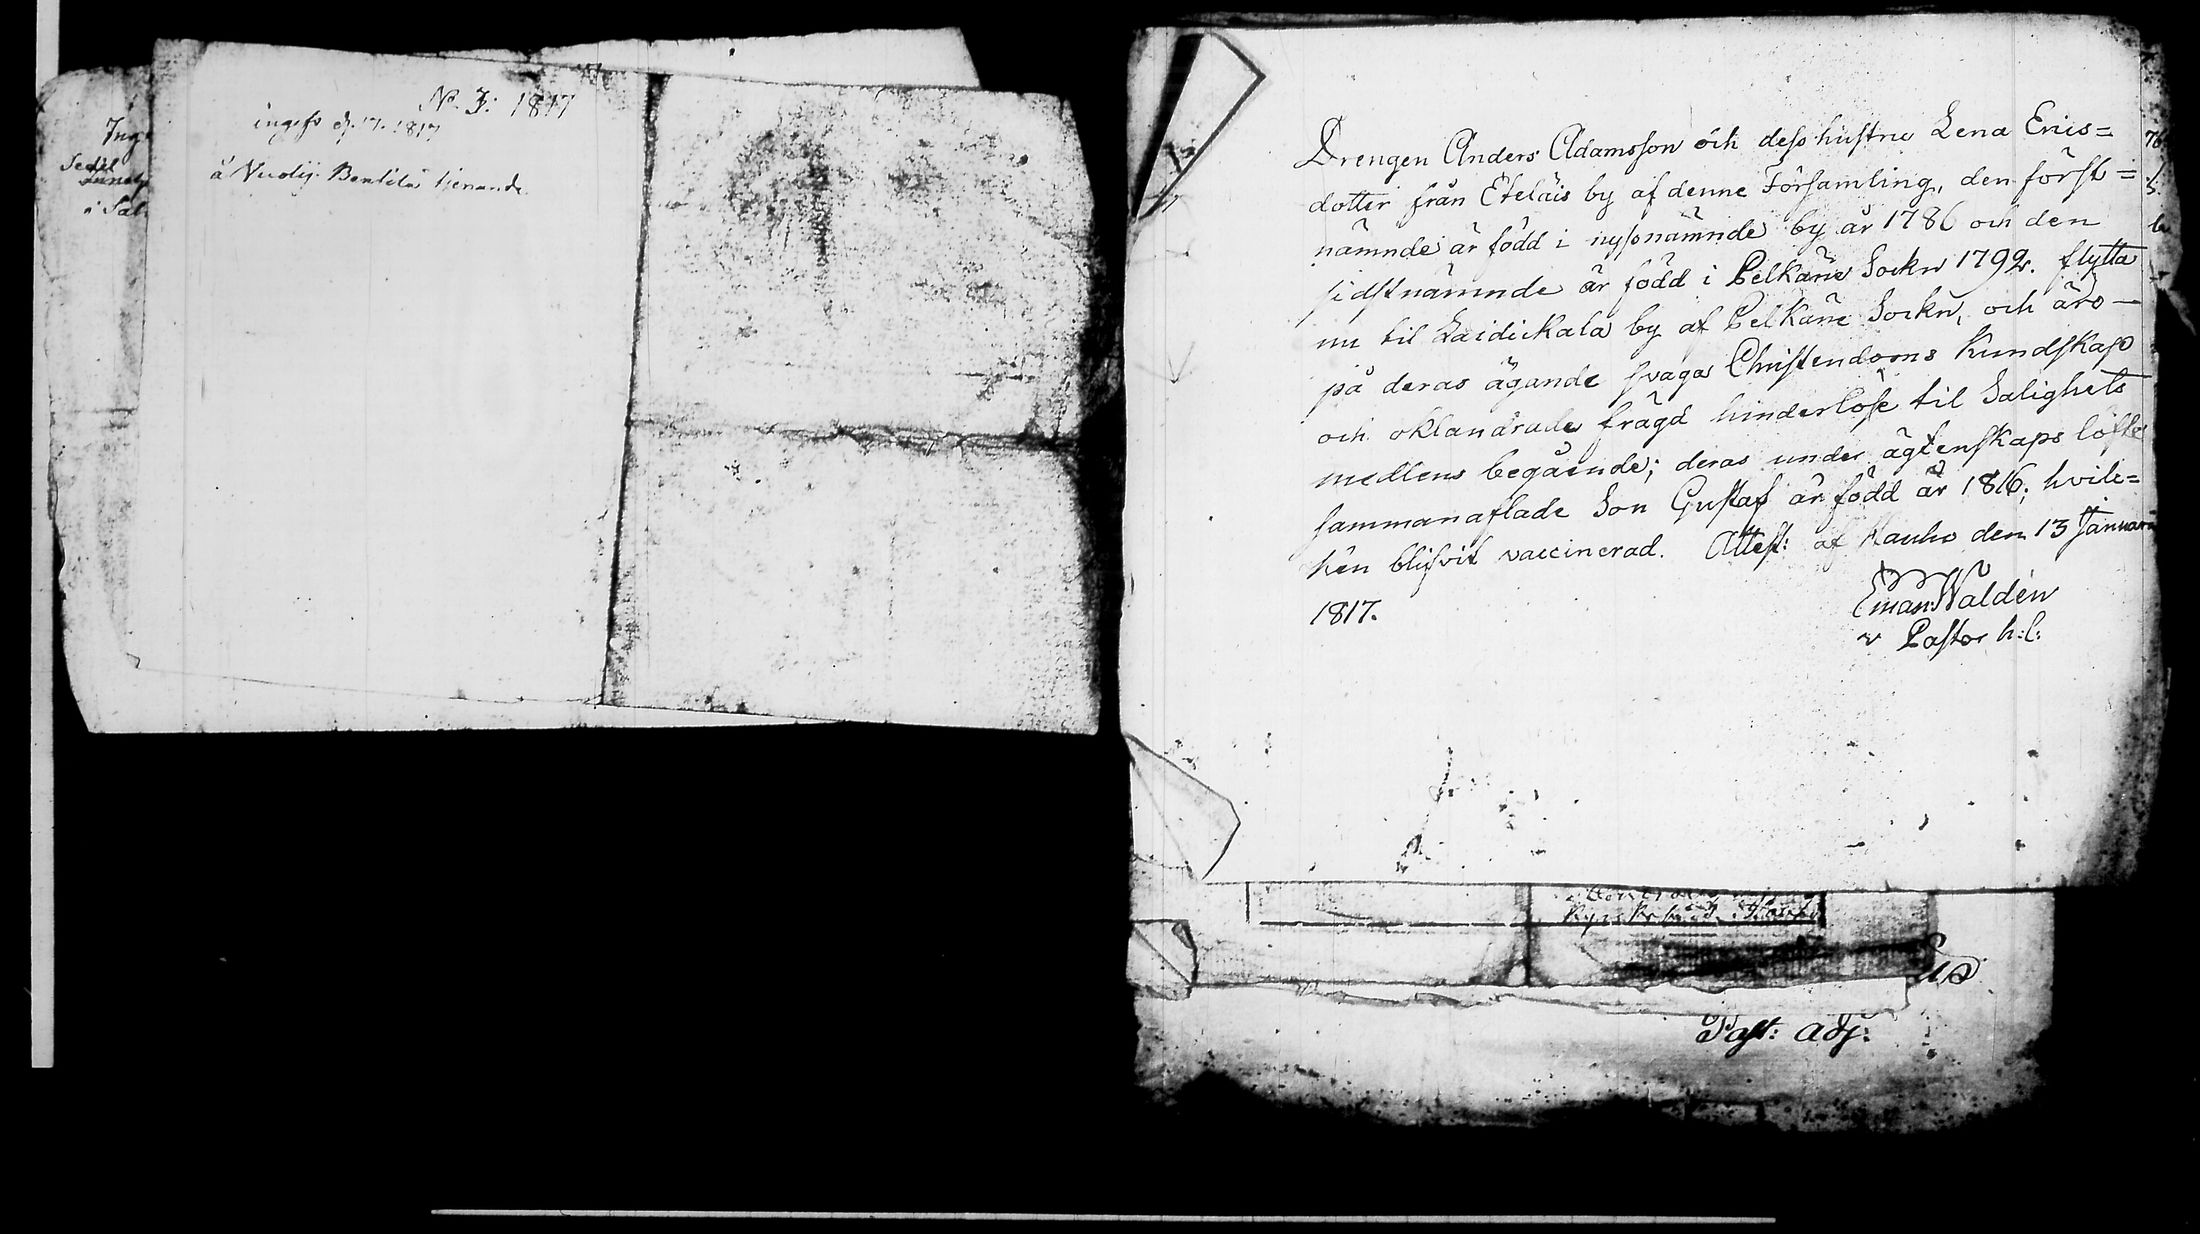 No. 3: 1817
1817
å Bentilä tienande
Inge
Sedel
i Sal
Drengen Anders Adamsson och dess hustru Lena Erics=
dotter från Eteläis by af denne Församling, den först=
nämnde är född i nyssnämnde by år 1786 och den
sidstnämnde är född i Pelkäne Sockn 1792. flytta
nu til Laidickala by af Pelkäne Sockn, och äro
på deras ägande svaga Christendoms Kundskap
och oklandrade frägd hinderlöse til Salighets
medlens begående; deras under ägtenskaps löfte
sammanaflade Son Gustaf är född år 1816; hvil=
ken blifvit vaccinerad. Attest: af Hauho den 13 Januari
1817.
Eman: Waldén
v Pastor h:l:
Past: Adj: